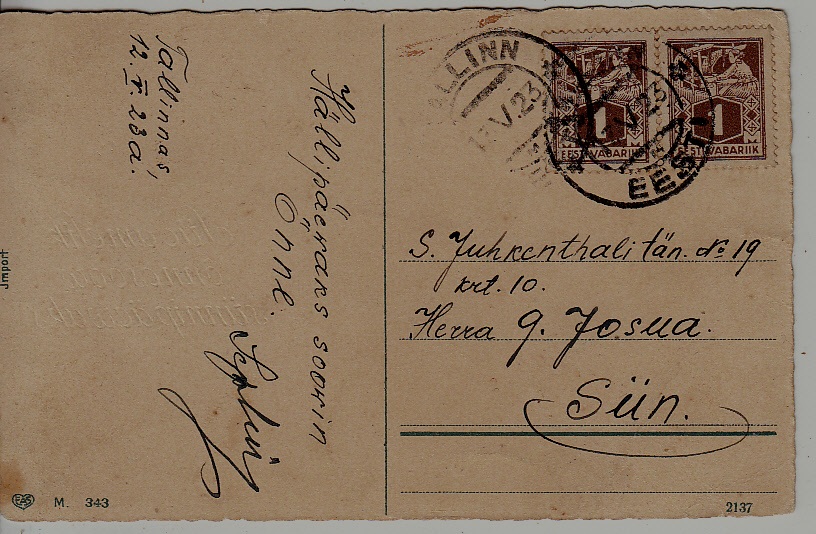 Tallinnas,
12. V. 23 a.
Hällipäevaks soovin
Õnne.
Import
M. 343
TALLINN
EESTI
V.23
1
EESTI VABARIIK
1
EESTI VABARIIK
S. Juhkenthali tän. No 19
krt. 10.
Herra G. Josua.
Siin.
2137